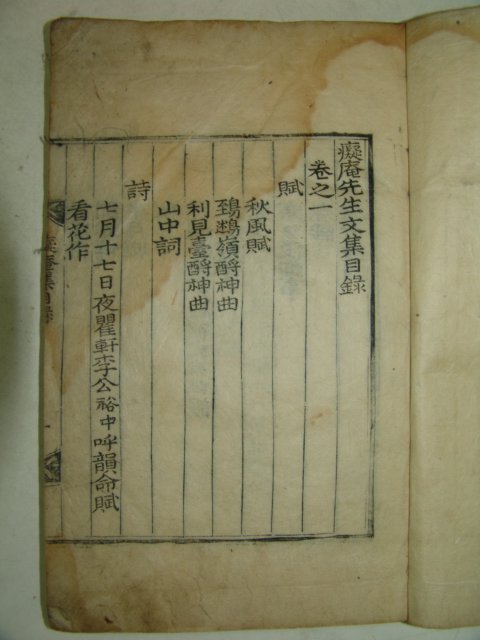 癡庵先生文集目錄
卷之一
賦
秋風賦
鵄鷀嶺酹神曲
利見臺酹神曲
山中詞
詩
七月十七日夜瞿軒李公裕中呼韻命賦
看花作
癡庵集目錄